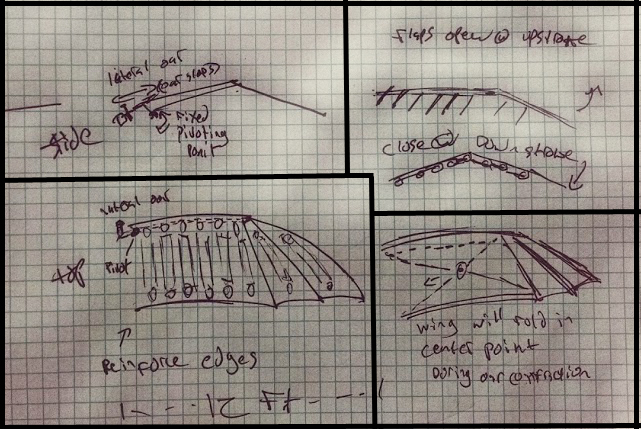 lateral bar
Fixed
Pivoting
Point
side
Flaps open @ upstroke
close @ Downstroke
lateral bar
Pivot
top
Reinforce edges
12 Ft
wing will fold in
center point
During contraction